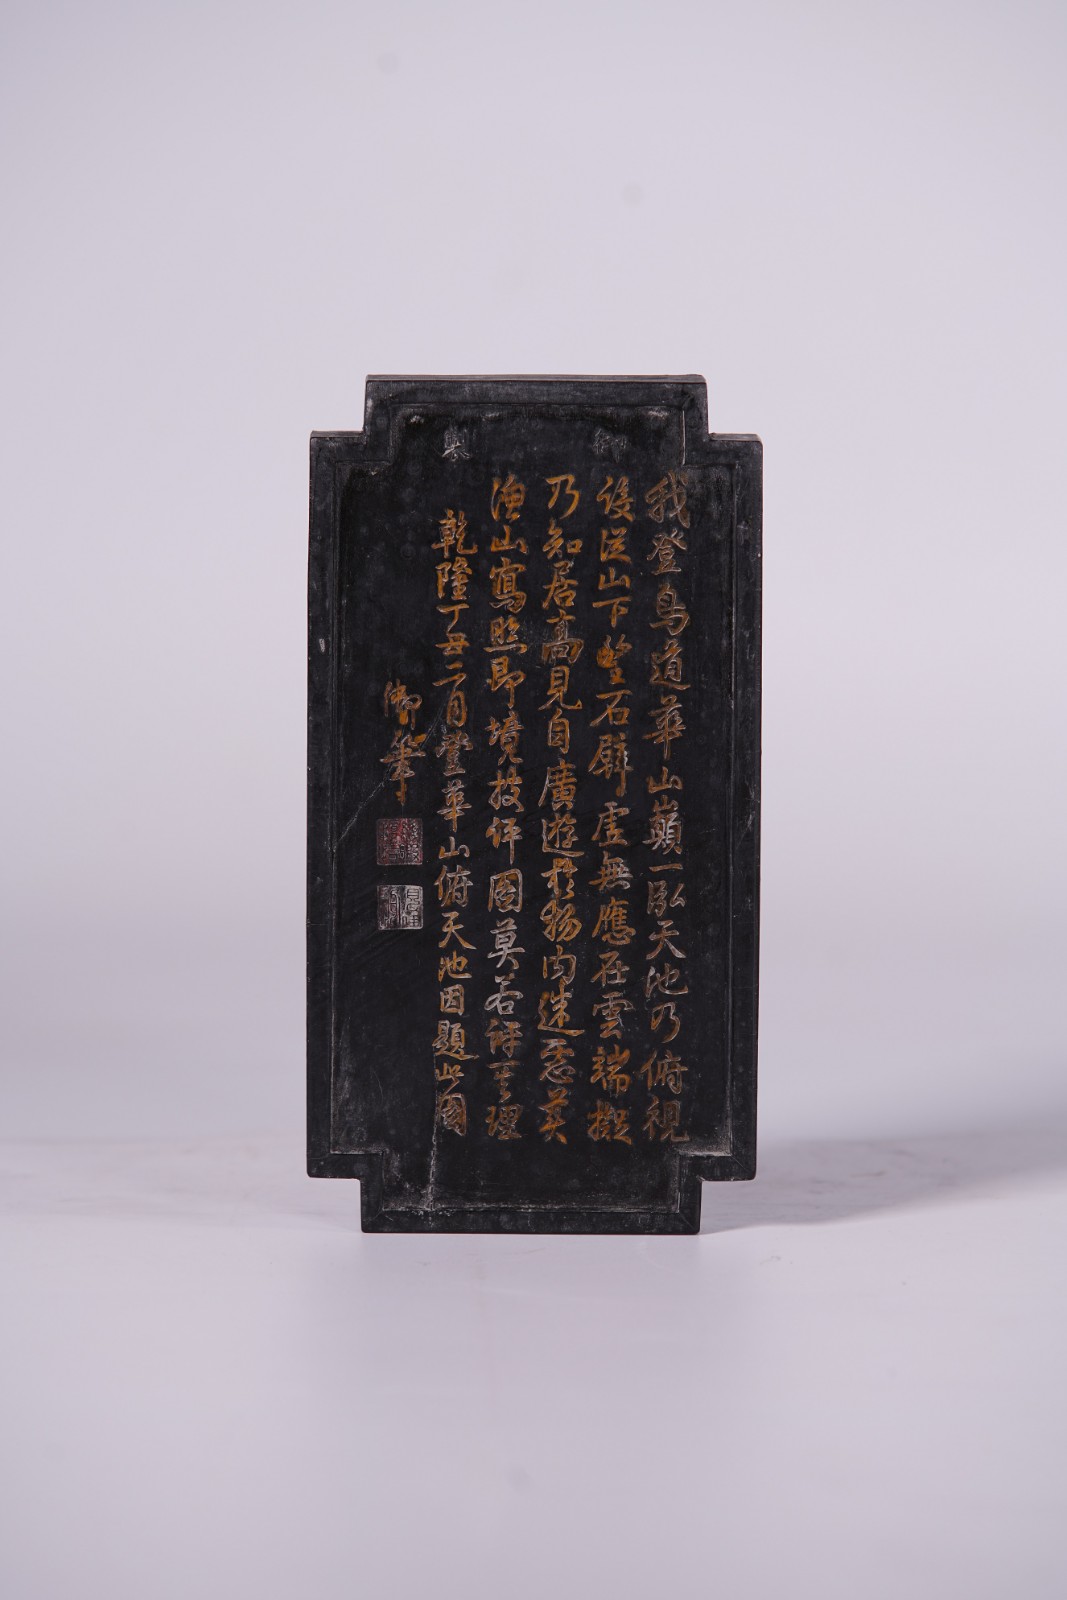 御製
我登鳥道華山巔一泓天池乃俯視
設從山下望石壁虛無應在雲端擬
乃知居高見自廣遊於物內迷悉矣
漁山寫照即境披評圖莫若評其理
乾隆丁丑二月登華山俯天池因題此圖
御筆